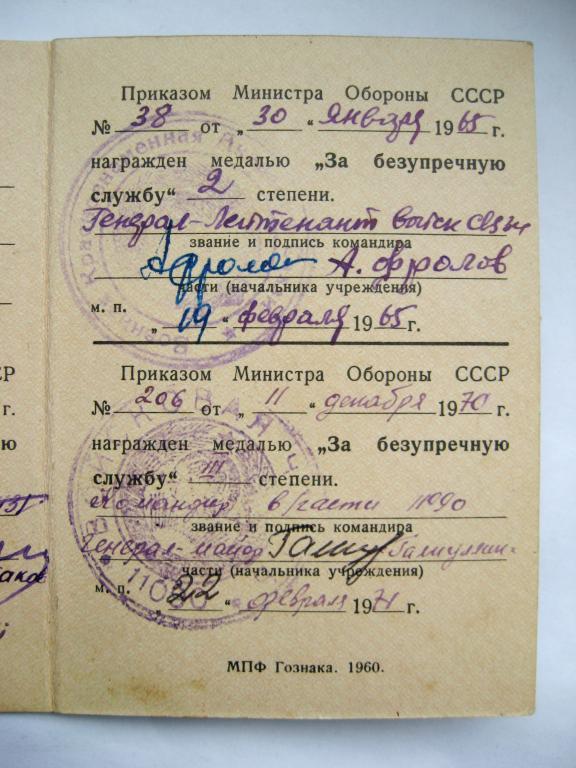 Приказом Министра Обороны СССР
№ 38 от „ 30 “ января 1965 г.
награжден медалью „За безупречную
службу“ 2 степени.
Генерал-Лейтенант войск связи
звание и подпись командира
А. Фролов
части (начальника учреждения)
м. п.
„ 19 “ февраля 1965 г.
Приказом Министра Обороны СССР
№ 206 от „ 11 “ декабря 1970 г.
награжден медалью „За безупречную
службу“ III степени.
Командир в/части 11090
звание и подпись командира
Генерал-майор
части (начальника учреждения)
м. п.
„ 22 “ февраля 1971 г.
МПФ Гознака. 1960.